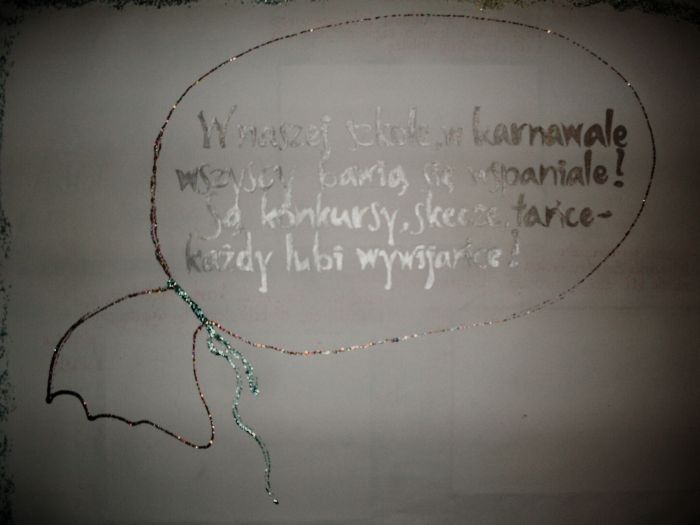 W naszej szkole, w karnawale
wszyscy bawią się wspaniale!
Są konkursy, skecze, tańce-
każdy lubi wywijańce!